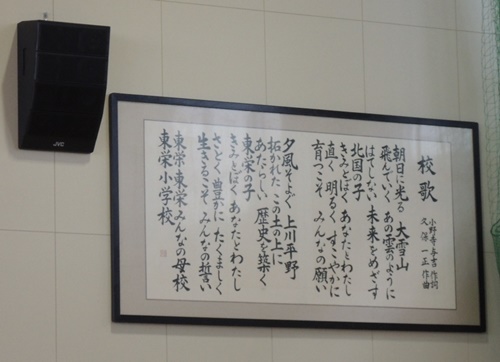 校歌
小野寺与吉 作詞
久保 一正 作曲
朝日に光る 大雪山
飛んでいく あの雲のように
はてしない 未来をめざす
北国の子
きみとぼく あなたとわたし
直く 明るく すこやかに
育つこそ みんなの願い
夕風そよぐ 上川平野
拓かれた この土の上に
あたらしい 歴史を築く
東栄の子
きみとぼく あなたとわたし
さとく 豊かに たくましく
生きるこそ みんなの誓い
東栄 東栄 みんなの母校
東栄小学校
JVC